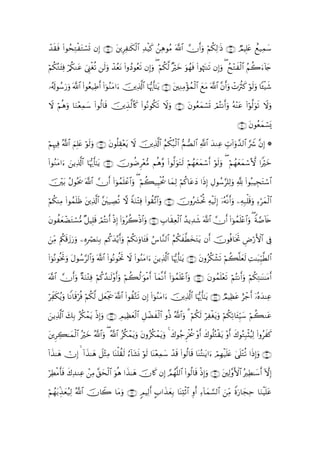 إِن تَسْتَفْتِحُوا۟ فَقَدْ سَمِيعٌ عَلِيمٌ ۝ ذَٰلِكُمْ وَأَنَّ ٱللَّهَ مُوهِنُ كَيْدِ ٱلْكَـٰفِرِينَ ۝
جَآءَكُمُ ٱلْفَتْحُ ۖ وَإِن تَنتَهُوا۟ فَهُوَ خَيْرٌ لَّكُمْ ۖ وَإِن تَعُودُوا۟ نَعُدْ وَلَن تُغْنِىَ عَنكُمْ فِئَتُكُمْ
شَيْـًٔا وَلَوْ كَثُرَتْ وَأَنَّ ٱللَّهَ مَعَ ٱلْمُؤْمِنِينَ ۝ يَـٰٓأَيُّهَا ٱلَّذِينَ ءَامَنُوٓا۟ أَطِيعُوا۟ ٱللَّهَ وَرَسُولَهُۥ
وَلَا تَوَلَّوْا۟ عَنْهُ وَأَنتُمْ تَسْمَعُونَ ۝ وَلَا تَكُونُوا۟ كَٱلَّذِينَ قَالُوا۟ سَمِعْنَا وَهُمْ لَا
يَسْمَعُونَ ۝
۞ إِنَّ شَرَّ ٱلدَّوَآبِّ عِندَ ٱللَّهِ ٱلصُّمُّ ٱلْبُكْمُ ٱلَّذِينَ لَا يَعْقِلُونَ ۝ وَلَوْ عَلِمَ ٱللَّهُ فِيهِمْ
خَيْرًا لَّأَسْمَعَهُمْ ۖ وَلَوْ أَسْمَعَهُمْ لَتَوَلَّوا۟ وَّهُم مُّعْرِضُونَ ۝ يَـٰٓأَيُّهَا ٱلَّذِينَ ءَامَنُوا۟
ٱسْتَجِيبُوا۟ لِلَّهِ وَلِلرَّسُولِ إِذَا دَعَاكُمْ لِمَا يُحْيِيكُمْ ۖ وَٱعْلَمُوٓا۟ أَنَّ ٱللَّهَ يَحُولُ بَيْنَ
ٱلْمَرْءِ وَقَلْبِهِۦ وَأَنَّهُۥٓ إِلَيْهِ تُحْشَرُونَ ۝ وَٱتَّقُوا۟ فِتْنَةً لَّا تُصِيبَنَّ ٱلَّذِينَ ظَلَمُوا۟ مِنكُمْ
خَآصَّةً ۖ وَٱعْلَمُوٓا۟ أَنَّ ٱللَّهَ شَدِيدُ ٱلْعِقَابِ ۝ وَٱذْكُرُوٓا۟ إِذْ أَنتُمْ قَلِيلٌ مُّسْتَضْعَفُونَ
فِى ٱلْأَرْضِ تَخَافُونَ أَن يَتَخَطَّفَكُمُ ٱلنَّاسُ فَـَٔاوَىٰكُمْ وَأَيَّدَكُم بِنَصْرِهِۦ وَرَزَقَكُم مِّنَ
ٱلطَّيِّبَـٰتِ لَعَلَّكُمْ تَشْكُرُونَ ۝ يَـٰٓأَيُّهَا ٱلَّذِينَ ءَامَنُوا۟ لَا تَخُونُوا۟ ٱللَّهَ وَٱلرَّسُولَ وَتَخُونُوٓا۟
أَمَـٰنَـٰتِكُمْ وَأَنتُمْ تَعْلَمُونَ ۝ وَٱعْلَمُوٓا۟ أَنَّمَآ أَمْوَٰلُكُمْ وَأَوْلَـٰدُكُمْ فِتْنَةٌ وَأَنَّ ٱللَّهَ
عِندَهُۥٓ أَجْرٌ عَظِيمٌ ۝ يَـٰٓأَيُّهَا ٱلَّذِينَ ءَامَنُوٓا۟ إِن تَتَّقُوا۟ ٱللَّهَ يَجْعَل لَّكُمْ فُرْقَانًا وَيُكَفِّرْ
عَنكُمْ سَيِّـَٔاتِكُمْ وَيَغْفِرْ لَكُمْ ۗ وَٱللَّهُ ذُو ٱلْفَضْلِ ٱلْعَظِيمِ ۝ وَإِذْ يَمْكُرُ بِكَ ٱلَّذِينَ
كَفَرُوا۟ لِيُثْبِتُوكَ أَوْ يَقْتُلُوكَ أَوْ يُخْرِجُوكَ ۚ وَيَمْكُرُونَ وَيَمْكُرُ ٱللَّهُ ۖ وَٱللَّهُ خَيْرُ ٱلْمَـٰكِرِينَ
۝ وَإِذَا تُتْلَىٰ عَلَيْهِمْ ءَايَـٰتُنَا قَالُوا۟ قَدْ سَمِعْنَا لَوْ نَشَآءُ لَقُلْنَا مِثْلَ هَـٰذَآ ۙ إِنْ هَـٰذَآ
إِلَّآ أَسَـٰطِيرُ ٱلْأَوَّلِينَ ۝ وَإِذْ قَالُوا۟ ٱللَّهُمَّ إِن كَانَ هَـٰذَا هُوَ ٱلْحَقَّ مِنْ عِندِكَ فَأَمْطِرْ
عَلَيْنَا حِجَارَةً مِّنَ ٱلسَّمَآءِ أَوِ ٱئْتِنَا بِعَذَابٍ أَلِيمٍ ۝ وَمَا كَانَ ٱللَّهُ لِيُعَذِّبَهُمْ